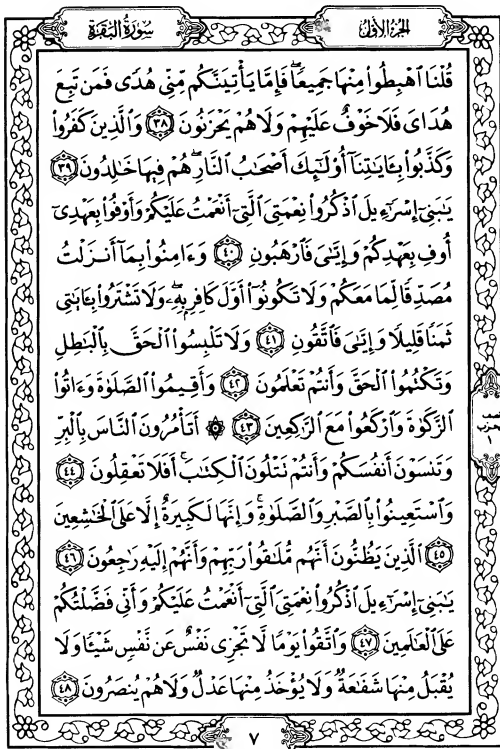 الجزء الأول
سورة البقرة
قُلْنَا ٱهْبِطُوا۟ مِنْهَا جَمِيعًا ۖ فَإِمَّا يَأْتِيَنَّكُم مِّنِّى هُدًى فَمَن تَبِعَ
هُدَاىَ فَلَا خَوْفٌ عَلَيْهِمْ وَلَا هُمْ يَحْزَنُونَ ٣٨ وَٱلَّذِينَ كَفَرُوا۟
وَكَذَّبُوا۟ بِـَٔايَـٰتِنَآ أُو۟لَـٰٓئِكَ أَصْحَـٰبُ ٱلنَّارِ ۖ هُمْ فِيهَا خَـٰلِدُونَ ٣٩
يَـٰبَنِىٓ إِسْرَٰٓءِيلَ ٱذْكُرُوا۟ نِعْمَتِىَ ٱلَّتِىٓ أَنْعَمْتُ عَلَيْكُمْ وَأَوْفُوا۟ بِعَهْدِىٓ
أُوفِ بِعَهْدِكُمْ وَإِيَّـٰىَ فَٱرْهَبُونِ ٤٠ وَءَامِنُوا۟ بِمَآ أَنزَلْتُ
مُصَدِّقًا لِّمَا مَعَكُمْ وَلَا تَكُونُوٓا۟ أَوَّلَ كَافِرٍۭ بِهِۦ ۖ وَلَا تَشْتَرُوا۟ بِـَٔايَـٰتِى
ثَمَنًا قَلِيلًا وَإِيَّـٰىَ فَٱتَّقُونِ ٤١ وَلَا تَلْبِسُوا۟ ٱلْحَقَّ بِٱلْبَـٰطِلِ
وَتَكْتُمُوا۟ ٱلْحَقَّ وَأَنتُمْ تَعْلَمُونَ ٤٢ وَأَقِيمُوا۟ ٱلصَّلَوٰةَ وَءَاتُوا۟
ٱلزَّكَوٰةَ وَٱرْكَعُوا۟ مَعَ ٱلرَّٰكِعِينَ ٤٣ ۞ أَتَأْمُرُونَ ٱلنَّاسَ بِٱلْبِرِّ
وَتَنسَوْنَ أَنفُسَكُمْ وَأَنتُمْ تَتْلُونَ ٱلْكِتَـٰبَ ۚ أَفَلَا تَعْقِلُونَ ٤٤
وَٱسْتَعِينُوا۟ بِٱلصَّبْرِ وَٱلصَّلَوٰةِ ۚ وَإِنَّهَا لَكَبِيرَةٌ إِلَّا عَلَى ٱلْخَـٰشِعِينَ
٤٥ ٱلَّذِينَ يَظُنُّونَ أَنَّهُم مُّلَـٰقُوا۟ رَبِّهِمْ وَأَنَّهُمْ إِلَيْهِ رَٰجِعُونَ ٤٦
يَـٰبَنِىٓ إِسْرَٰٓءِيلَ ٱذْكُرُوا۟ نِعْمَتِىَ ٱلَّتِىٓ أَنْعَمْتُ عَلَيْكُمْ وَأَنِّى فَضَّلْتُكُمْ
عَلَى ٱلْعَـٰلَمِينَ ٤٧ وَٱتَّقُوا۟ يَوْمًا لَّا تَجْزِى نَفْسٌ عَن نَّفْسٍ شَيْـًٔا وَلَا
يُقْبَلُ مِنْهَا شَفَـٰعَةٌ وَلَا يُؤْخَذُ مِنْهَا عَدْلٌ وَلَا هُمْ يُنصَرُونَ ٤٨
٧
الحزب
١